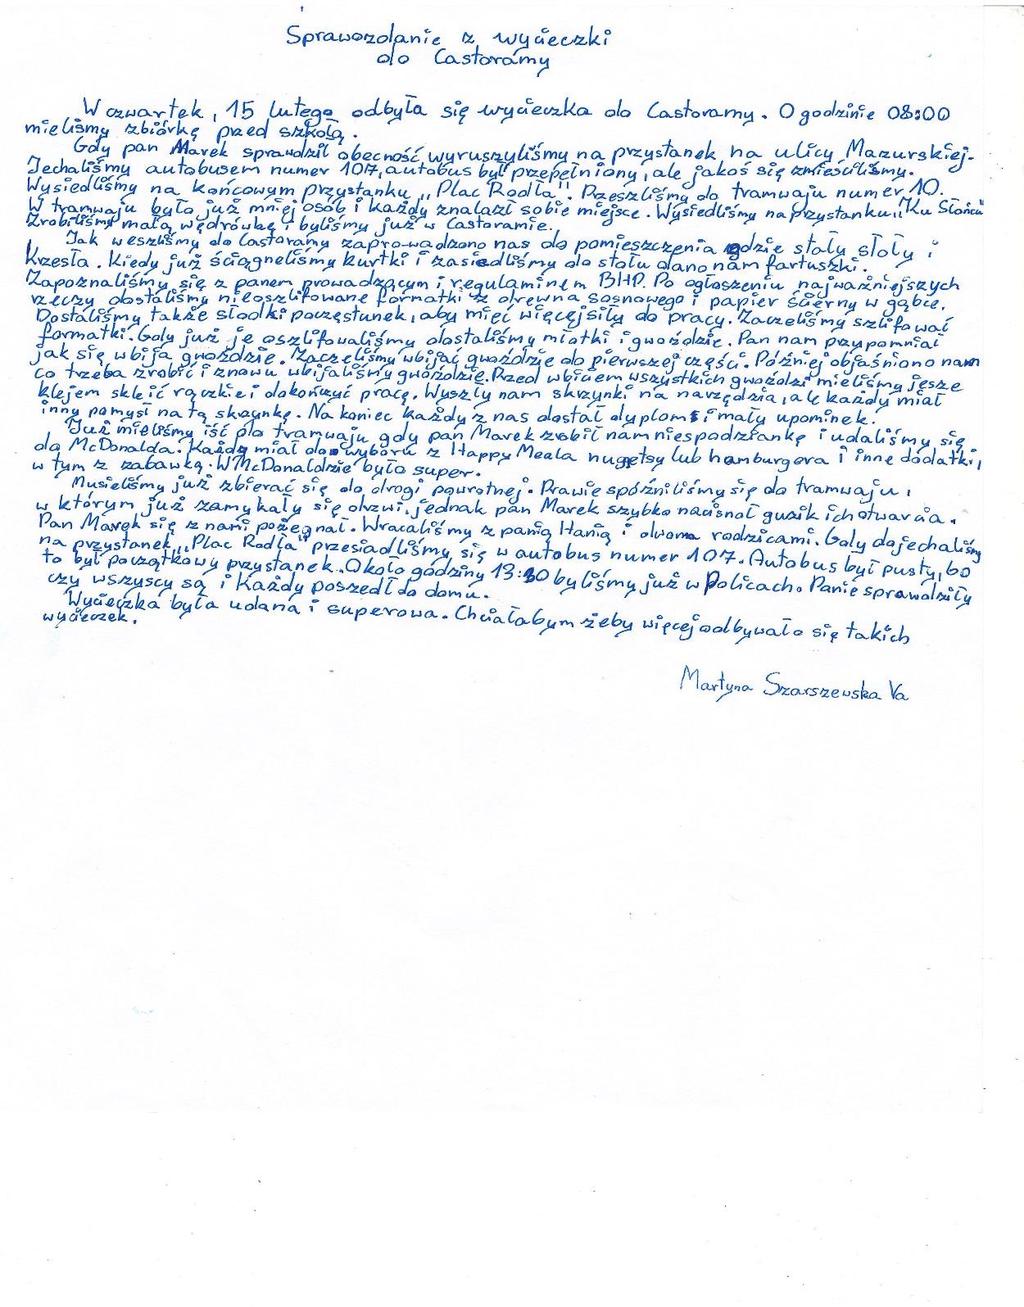 Sprawozdanie z wycieczki
do Castoramy
W czwartek, 15 lutego odbyła się wycieczka do Castoramy. O godzinie 08:00
mieliśmy zbiórkę przed szkołą.
Gdy pan Marek sprawdził obecność, wyruszyliśmy na przystanek na ulicy Mazurskiej.
Jechaliśmy autobusem numer 107, autobus był przepełniony, ale jakoś się zmieściliśmy.
Wysiedliśmy na końcowym przystanku „Plac Rodła". Przeszliśmy do tramwaju numer 10.
W tramwaju było już mniej osób i każdy znalazł sobie miejsce. Wysiedliśmy na przystanku „Ku Słońcu"
Zrobiliśmy małą wędrówkę i byliśmy już w Castoramie.
Jak weszliśmy do Castoramy zaprowadzono nas do pomieszczenia gdzie stały stoły i
krzesła. Kiedy już ściągneliśmy kurtki i zasiedliśmy do stołu dano nam fartuszki.
Zapoznaliśmy się z panem prowadzącym i regulaminem BHP. Po ogłoszeniu najważniejszych
rzeczy dostaliśmy nieoszlifowane formatki z drewna sosnowego i papier ścierny w gąbce.
Dostaliśmy także słodki poczęstunek, aby mieć więcej siły do pracy. Zaczeliśmy szlifować
formatki. Gdy już je oszlifowaliśmy dostaliśmy młotki i gwoździe. Pan nam przypomniał
jak się wbija gwoździe. Zaczeliśmy wbijać gwoździe do pierwszej części. Później objaśniono nam
co trzeba zrobić i znowu wbijaliśmy gwoździe. Przed wbiciem wszystkich gwoździ mieliśmy jesze
klejem skleić rączkę i dokończyć pracę. Wyszły nam skrzynki na narzędzia, ale każdy miał
inny pomysł na tą skrzynkę. Na koniec każdy z nas dostał dyplom i mały upominek.
Już mieliśmy iść do tramwaju gdy pan Marek zrobił nam niespodziankę i udaliśmy się
do McDonalda. Każdy miał do wyboru z Happy Meala nugetsy lub hamburgera i inne dodatki,
w tym z zabawką. W McDonaldzie było super.
Musieliśmy już zbierać się do drogi powrotnej. Prawie spóźniliśmy się do tramwaju,
w którym już zamykały się drzwi, jednak pan Marek szybko nacisnął guzik ich otwarcia.
Pan Marek się z nami pożegnał. Wracaliśmy z panią Hanią i dwoma rodzicami. Gdy dojechaliśmy
na przystanek „Plac Rodła" przesiadliśmy się w autobus numer 107. Autobus był pusty, bo
to był początkowy przystanek. Około godziny 13:30 byliśmy już w Policach. Panie sprawdziły
czy wszyscy są i każdy poszedł do domu.
Wycieczka była udana i superowa. Chciałabym żeby więcej odbywało się takich
wycieczek.
Martyna Szarszewska Va